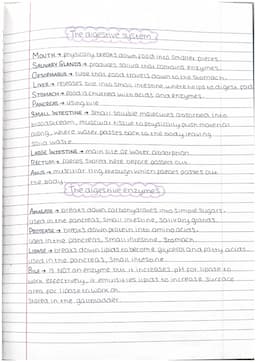 The digestive system
MOUTH → physically breaks down food into smaller pieces.
SALIVARY GLANDS → produces saliva that contains enzymes.
OESOPHAGUS → tube that food travels down to the stomach.
LIVER → releases bile into small intestine where helps to digest food
STOMACH → food is churned with acids and enzymes.
PANCREAS →
SMALL INTESTINE → small soluble molecules absorbed into
bloodstream, muscular tissue to physically push material
along, where water passes back to the body leaving
solid waste
LARGE INTESTINE → main site of water absorption
RECTUM → faeces stored here before passed out
ANUS → muscular ring through which faeces passes out
the body
The digestive enzymes
AMYLASE → breaks down carbohydrates into simple sugars.
used in the pancreas, small intestine, salivary glands.
PROTEASE → breaks down protein into amino acids.
used in the pancreas, small intestine, stomach
LIPASE → breaks down lipids to become glycerol and fatty acids.
used in the pancreas, small intestine
BILE → is NOT an enzyme but it increases pH for lipase to
work effectively, it emulsifies lipids to increase surface
area for lipase to work on.
stored in the gallbladder